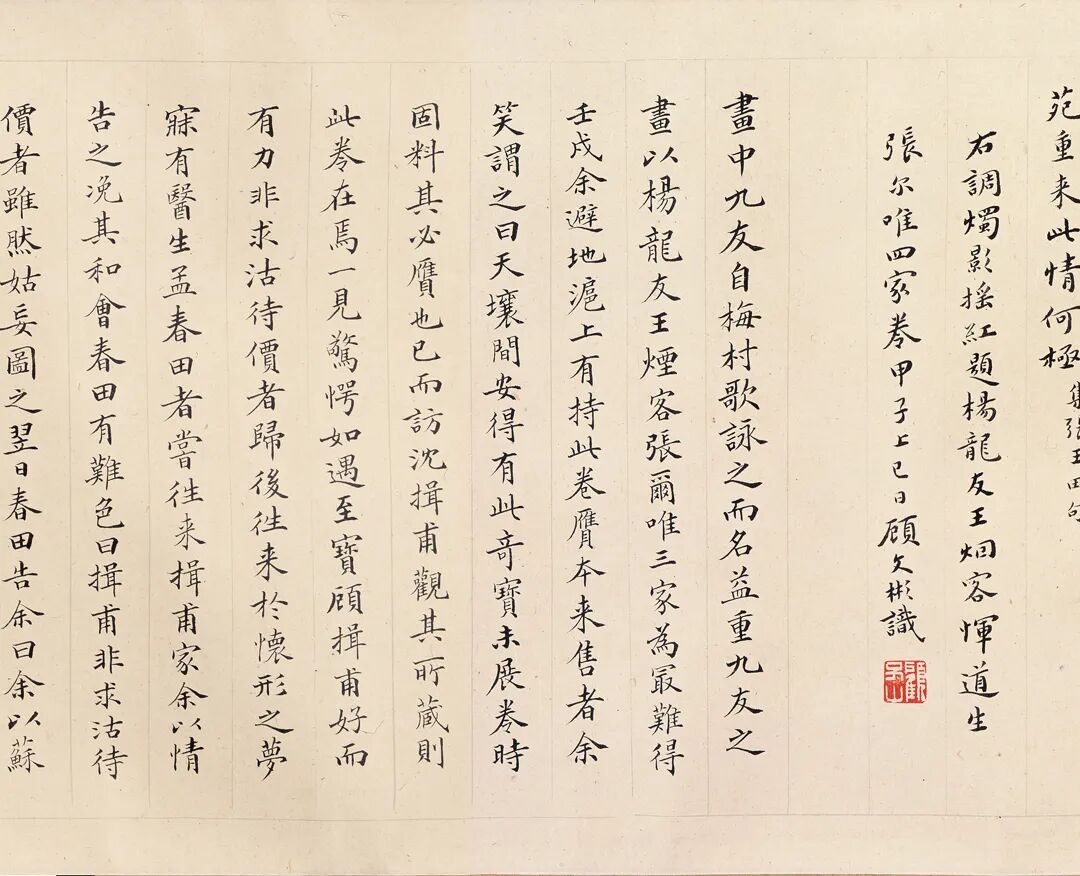 苑重来此情何極集張玉田句
右調燭影搖紅題楊龍友王烟客惲道生
張尔唯四家卷甲子上巳日顧文彬識
畫中九友自梅村歌詠之而名益重九友之
畫以楊龍友王煙客張爾唯三家為㝡難得
壬戌余避地滬上有持此卷贋本来售者余
笑謂之曰天壤間安得有此奇寶未展卷時
固料其必贋也已而訪沈揖甫觀其所蔵則
此卷在焉一見驚愕如遇至寶顧揖甫好而
有力非求沽待價者歸後往来於懷形之夢
寐有醫生孟春田者嘗往来揖甫家余以情
告之浼其和會春田有難色曰揖甫非求沽待
價者雖然姑妄圖之翌日春田告余曰余以蘇